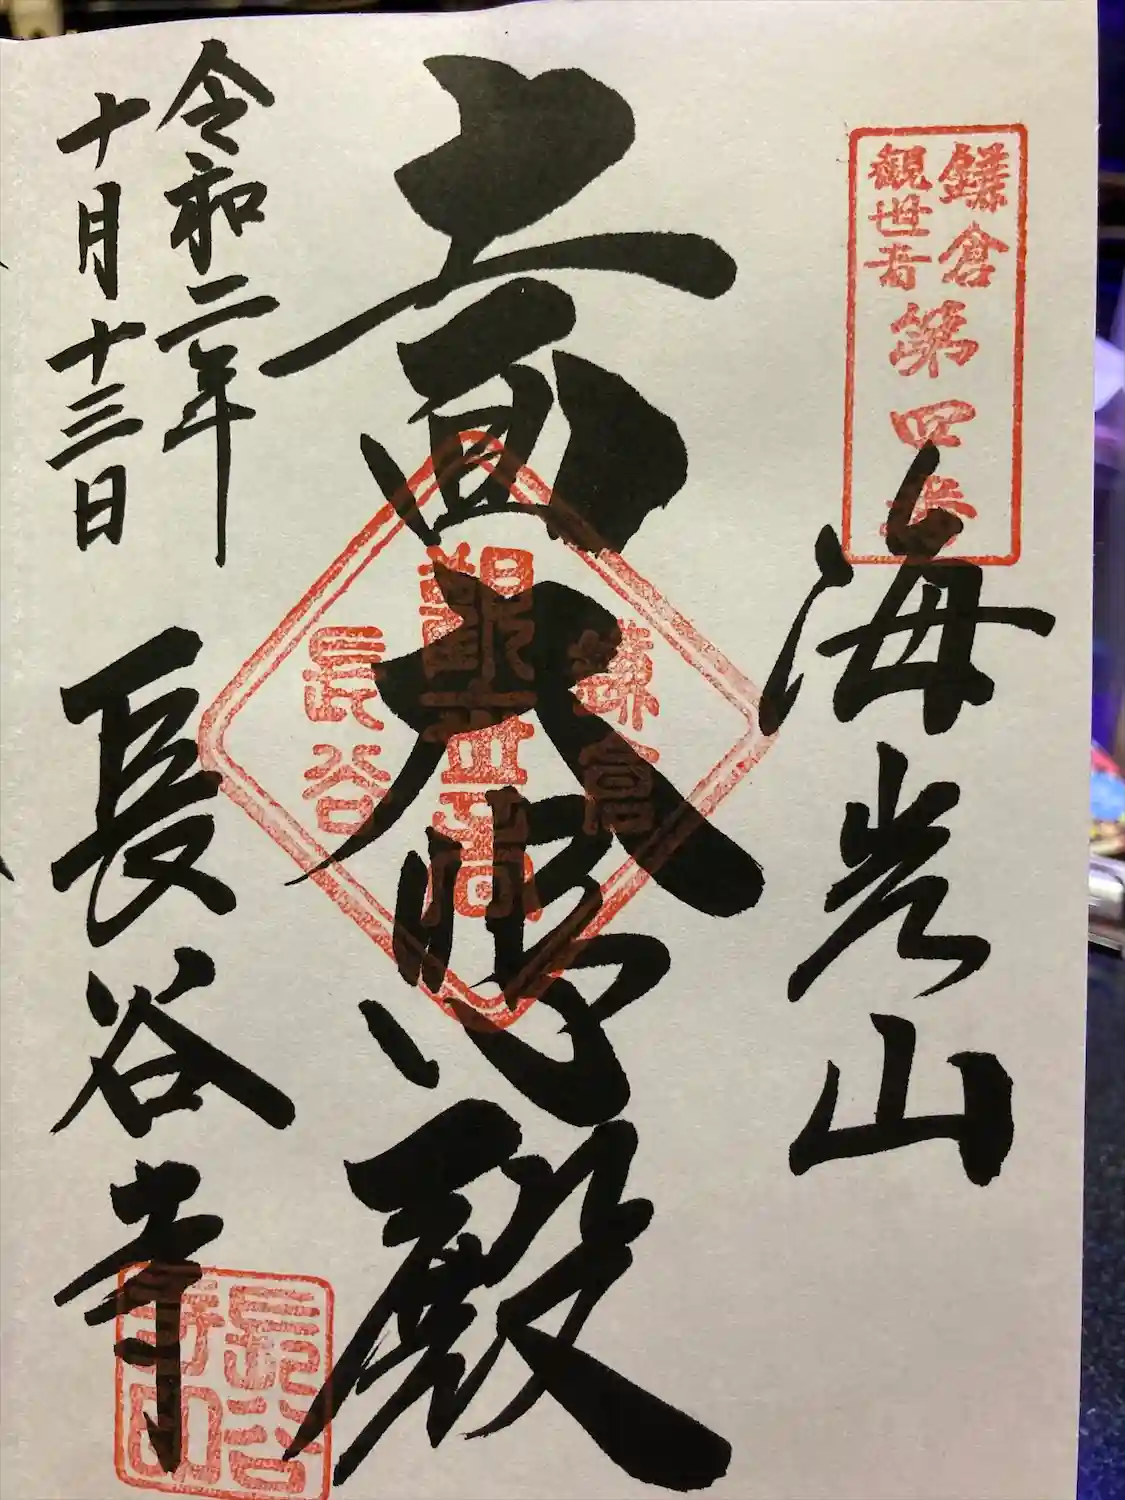 鎌倉
観世音
第四番
海光山
十一面大悲殿
鎌倉
長谷
令和二年
十月十三日
長谷寺
長谷
寺印